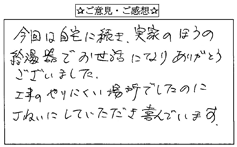 ☆ご意見・ご感想☆
今回は自宅に続き、実家のほうの
給湯器でお世話になりありがとう
ございました。
工事のやりにくい場所でしたのに
丁ねいにしていただき喜んでいます。